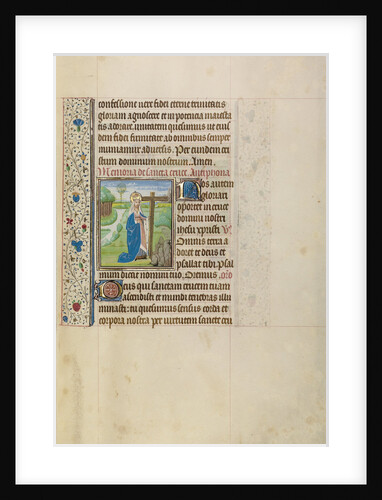 confessione vere fidei eterne trinitatis
gloriam agnoscere et in potentia maiesta
tis adorare unitatem quesumus ut eius
dem fidei firmitate ab omnibus semper
muniamur adversis. Per eundem cri
stum dominum nostrum. Amen.
Memoria de sancta cruce Antiphona
Nos autem
gloriari
oportet in cruce
domini nostri
ihesu xpristi V̄.
Omnis terra a
doret te deus et
psallat tibi. Psal
mum dicat nomini tuo. Oremus. oro
Deus qui sanctam crucem tuam
ascendisti et mundi tenebras illu
minasti: tu quesumus sensus corda et
corpora nostra per virtutem sancte cru